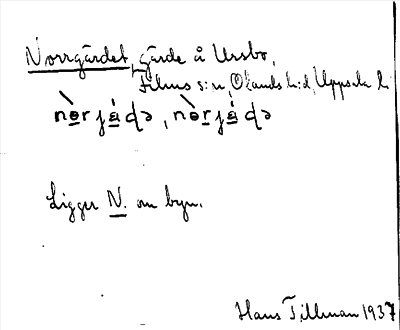 Norrgärdet, gärde å Ursbo,
Films s:n, Olands h:d, Uppsala l.
nòrjáḍə, nòrjáḍə
Ligger N. om byn.
Hans Tillman 1937